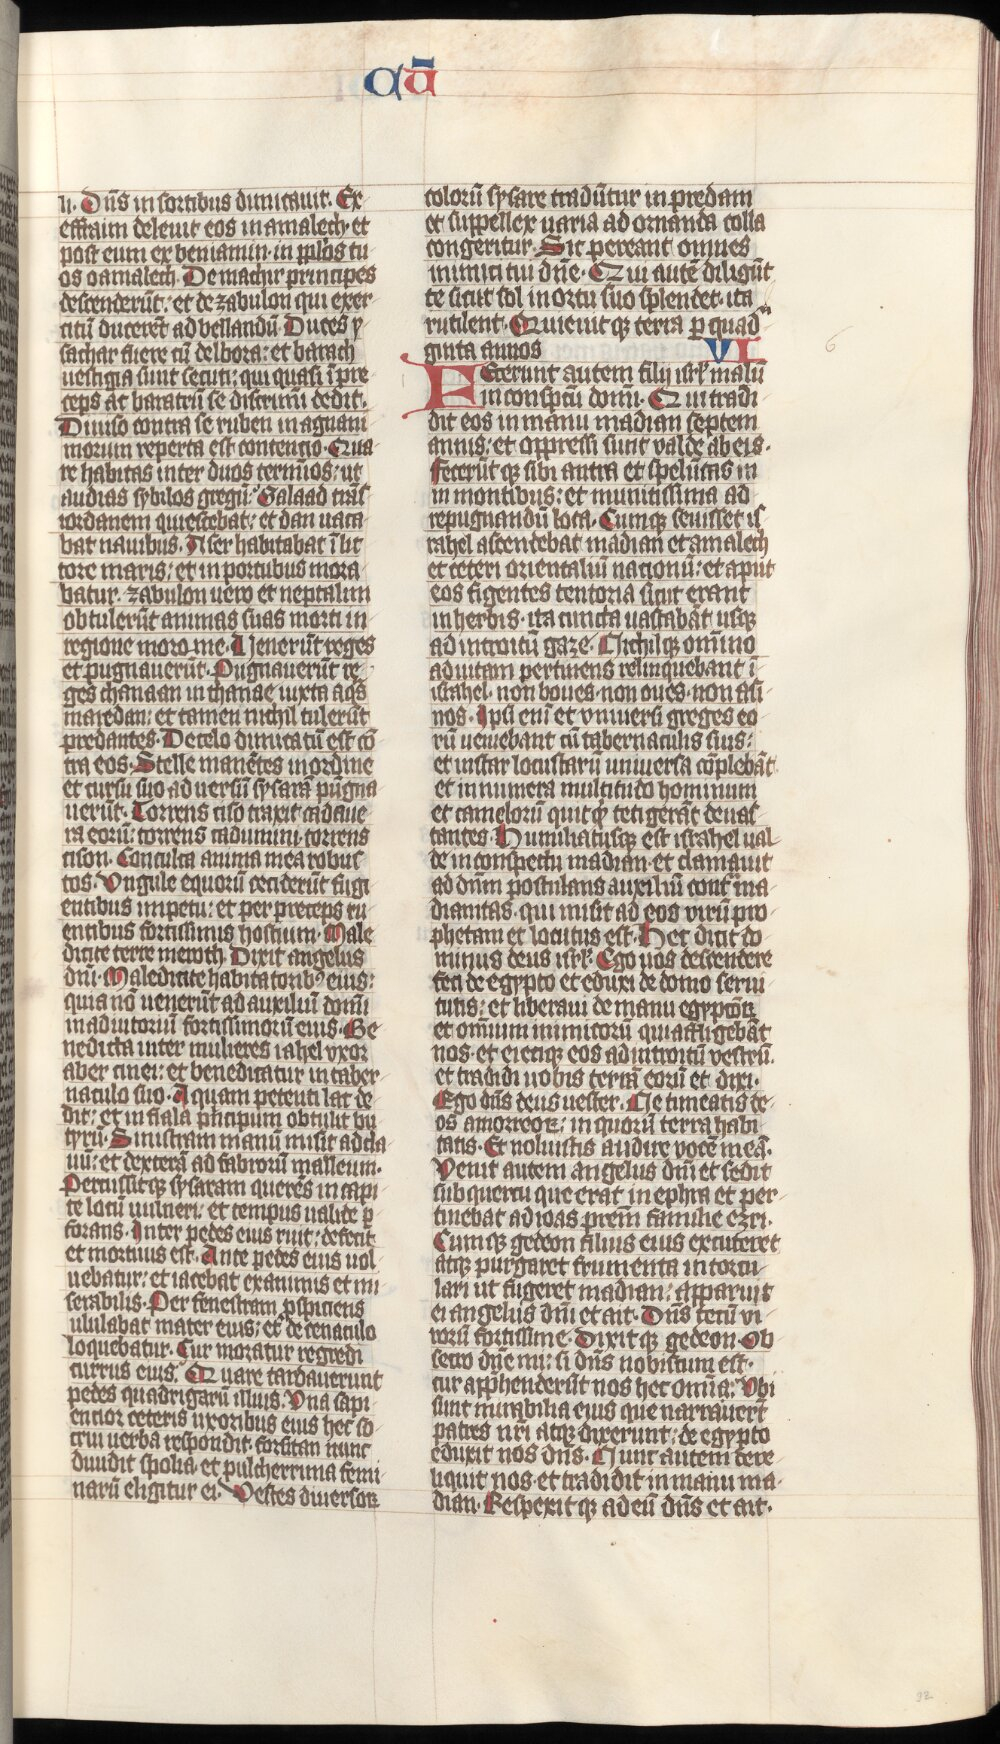 cū
li. Dn̄s in fortibus dimicauit. Ex
effraim deleuit eos in amalech. et
post eum ex beniamin. in pp̄los tu
os o amalech. De machir principes
descenderūt. et de zabulon qui exer
citū ducerēt ad bellandū. Duces y
sachar fuere cū delbora: et barach
uestigia sunt secuti: qui quasi ī pre
ceps ac baratrū se discrimī dedit.
Diuiso contra se ruben magnani
morum reperta est contencio. Qua
re habitas inter duos termīos: ut
audias sybilos gregū. Galaad trās
iordanem quiescebat: et dan uaca
bat nauibus. Aser habitabat ī lit
tore maris: et in portubus mora
batur. Zabulon uero et neptalim
obtulerūt animas suas morti in
regione moro me. Uenerūt reges
et pugnauerūt. Pugnauerūt re
ges chanaan in thanac iuxta aq̄s
magedan: et tamen nichil tulerūt
predantes. De celo dimicatū est cō
tra eos. Stelle manētes in ordine
et cursu suo aduersū sysarā pugna
uerūt. Torrens cison traxit cadaue
ra eorū: torrens cadumim: torrens
cison. Conculca anima mea robus
tos. Vngule equorū ceciderūt fugi
entibus impetu: et per preceps ru
entibus fortissimis hostium. Male
dicite terre meroth. Dixit angelus
dn̄i. Maledicite habitatoribꝰ eius:
quia nō uenerūt ad auxiliū domī
in adiutoriū fortissimorū eius. Be
nedicta inter mulieres iahel vxor
aber cinei: et benedicatur in taber
naculo suo. Aquam petenti lac de
dit: et in fiala pͥncipum obtulit bu
tyrū. Sinistram manū misit ad cla
uū: et dexterā ad fabrorū malleum.
Percussitqꝫ sysaram querēs in capi
te locū uulneri: et tempus ualide ꝑ
forans. Inter pedes eius ruit: defecit
et mortuus est. Ante pedes eius uol
uebatur: et iacebat exanimis et mi
serabilis. Per fenestram ꝓspiciens
ululabat mater eius: et de cenaculo
loquebatur. Cur moratur regredi
currus eius. Quare tardauerunt
pedes quadrigarū illius. Vna sapi
encior ceteris uxoribus eius hec so
crui uerba respondit. forsitan nunc
diuidit spolia et pulcherrima femi
narū eligitur ei. Vestes diuersoꝝ
colorū sysare tradūtur in predam
et suppellex uaria ad ornanda colla
congeritur. Sic pereant omnes
inimici tui dn̄e. Qui autē diligūt
te sicut sol in ortu suo splendet. ita
rutilent. Quieuit qꝫ terra ꝑ quadra
ginta annos VI
Fecerunt autem filij isrl̄ malū
in conspcū domī. Qui tradi
dit eos in manu madian septem
annis: et oppressi sunt valde ab eis.
Fecerūt qꝫ sibi antra et spelūcas in
in montibus: et munitissima ad
repugnandū loca. Cumqꝫ seuisset is
rahel ascendebat madian et amalech
et ceteri orientaliū nacionū: et aput
eos figentes tentoria sicut erant
in herbis. ita cuncta uastabāt usqꝫ
ad introitū gaze. Nichilqꝫ om̄ino
ad uitam pertinens relinquebant ī
israhel. non boues. non oues. non asi
nos. Ipsi enī et vniuersi greges eo
rū ueniebant cū tabernaculis suis:
et instar locustarū uniuersa cōplebāt.
et innumera multitudo hominum
et camelorū quitqͥd tetigerāt deuas
tantes. Humiliatusqꝫ est israhel ual
de in conspectu madian. et clamauit
ad dn̄m postulans auxiliū contͣ ma
dianitas. qui misit ad eos virū pro
phetam et locutus est. Hec dicit do
minus deus isrl̄. Ego uos descendere
feci de egypto et eduxi de domo serui
tutis: et liberaui de manu egyptioꝝ
et omnium inimicorū qui affligebāt
uos. et eiecique eos ad introitū vestrū.
et tradidi uobis terrā eorū et dixi.
Ego dn̄s deus uester. Ne timeatis de
os amorreoꝝ: in quorū terra habi
tatis. Et noluistis audire vocē meā.
Venit autem angelus dn̄i et sedit
sub quercu que erat in ephra et per
tinebat ad ioas prem̄ familie ezri.
Cumqꝫ gedeon filius eius excuteret
atqꝫ purgaret frumenta in torcu
lari ut fugeret madian: apparuit
ei angelus dn̄i et ait. Dn̄s tecū vi
rorū fortissime. Dixit qꝫ gedeon. Ob
secro dn̄e mi: si dn̄s nobiscum est.
cur appͣhenderūt nos hec om̄ia. Vbi
sunt mirabilia eius que narrauerūt
patres nr̄i atqꝫ dixerunt: de egypto
eduxit nos dn̄s. Nunc autem dere
liquit nos. et tradidit in manu ma
dian. Respexit qꝫ ad eū dn̄s et ait.
6
92